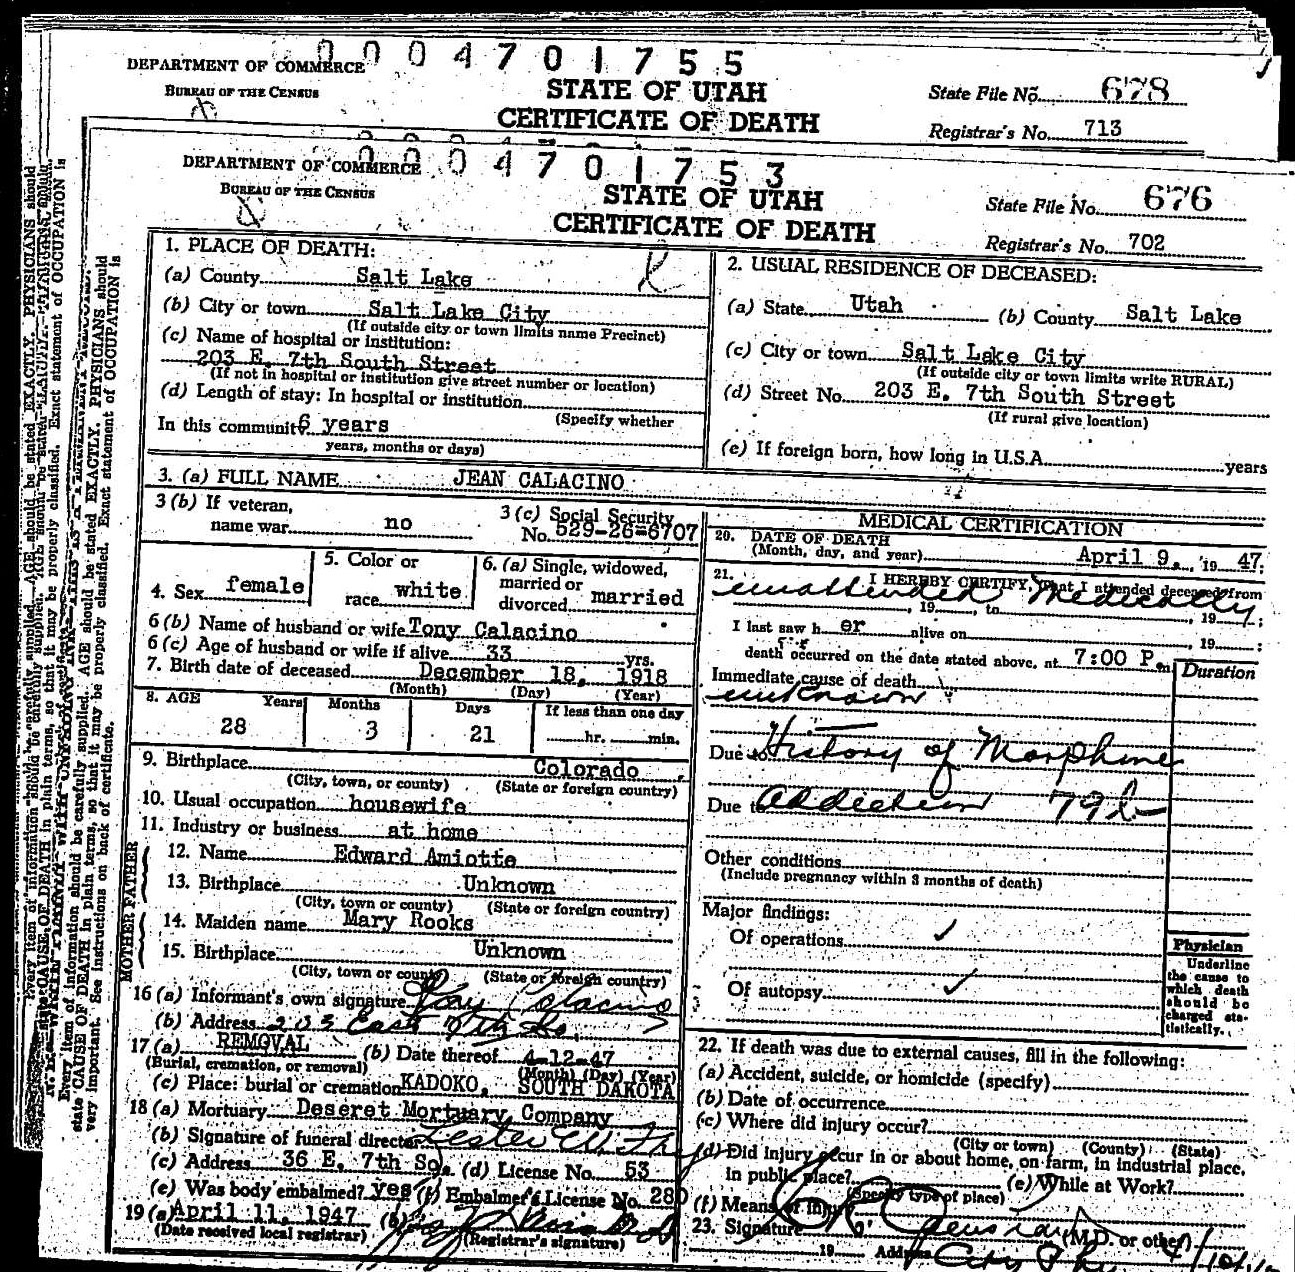 0004701755
DEPARTMENT OF COMMERCE
BUREAU OF THE CENSUS
STATE OF UTAH
CERTIFICATE OF DEATH
State File No. 678
Registrar's No. 713
0004701753
DEPARTMENT OF COMMERCE
BUREAU OF THE CENSUS
STATE OF UTAH
CERTIFICATE OF DEATH
State File No. 676
Registrar's No. 702
1. PLACE OF DEATH:
(a) County Salt Lake
(b) City or town Salt Lake City
(If outside city or town limits name Precinct)
(c) Name of hospital or institution:
203 E. 7th South Street
(If not in hospital or institution give street number or location)
(d) Length of stay: In hospital or institution
(Specify whether
In this community 6 years
years, months or days)
2. USUAL RESIDENCE OF DECEASED:
(a) State Utah (b) County Salt Lake
(c) City or town Salt Lake City
(If outside city or town limits write RURAL)
(d) Street No. 203 E. 7th South Street
(If rural give location)
(e) If foreign born, how long in U.S.A. years
3. (a) FULL NAME JEAN CALACINO
3 (b) If veteran,
name war no
3 (c) Social Security
No. 529-26-6707
4. Sex female
5. Color or
race white
6. (a) Single, widowed,
married or
divorced married
6 (b) Name of husband or wife Tony Calacino
6 (c) Age of husband or wife if alive 33 yrs.
7. Birth date of deceased December 18, 1918
(Month) (Day) (Year)
8. AGE Years Months Days If less than one day
28 3 21 hr. min.
9. Birthplace Colorado
(City, town, or county) (State or foreign country)
10. Usual occupation housewife
11. Industry or business at home
FATHER
12. Name Edward Amiotte
13. Birthplace Unknown
(City, town or county) (State or foreign country)
MOTHER
14. Maiden name Mary Rooks
15. Birthplace Unknown
(City, town or county) (State or foreign country)
16 (a) Informant's own signature Calacino
(b) Address 203 East 7th So.
17 (a) REMOVAL (b) Date thereof 4-12-47
(Burial, cremation, or removal) (Month) (Day) (Year)
(c) Place: burial or cremation KADOKO, SOUTH DAKOTA
18 (a) Mortuary Deseret Mortuary Company
(b) Signature of funeral director Lester W.
(c) Address 36 E. 7th So. (d) License No. 53
(e) Was body embalmed? yes (f) Embalmer's License No. 280
19 (a) April 11, 1947 (b)
(Date received local registrar) (Registrar's signature)
MEDICAL CERTIFICATION
20. DATE OF DEATH
(Month, day, and year) April 9, 1947;
21. I HEREBY CERTIFY, That I attended deceased from
unattended Medically
, 19 , to , 19 ;
I last saw h er alive on 19 ;
death occurred on the date stated above, at 7:00 P m
Immediate cause of death Duration
unknown
Due to History of Morphine
Due to Addiction 79b
Other conditions
(Include pregnancy within 3 months of death)
Major findings:
Of operations ✓
Of autopsy ✓
Physician
Underline
the cause to
which death
should be
charged sta-
tistically.
22. If death was due to external causes, fill in the following:
(a) Accident, suicide, or homicide (specify)
(b) Date of occurrence
(c) Where did injury occur?
(City or town) (County) (State)
(d) Did injury occur in or about home, on farm, in industrial place,
in public place? (e) While at Work?
(Specify type of place)
(f) Means of injury
23. Signature (M.D. or other)
19 Address City
Every item of information should be carefully supplied. AGE should be stated EXACTLY. PHYSICIANS should
state CAUSE OF DEATH in plain terms, so that it may be properly classified. Exact statement of OCCUPATION is
very important. See instructions on back of certificate.